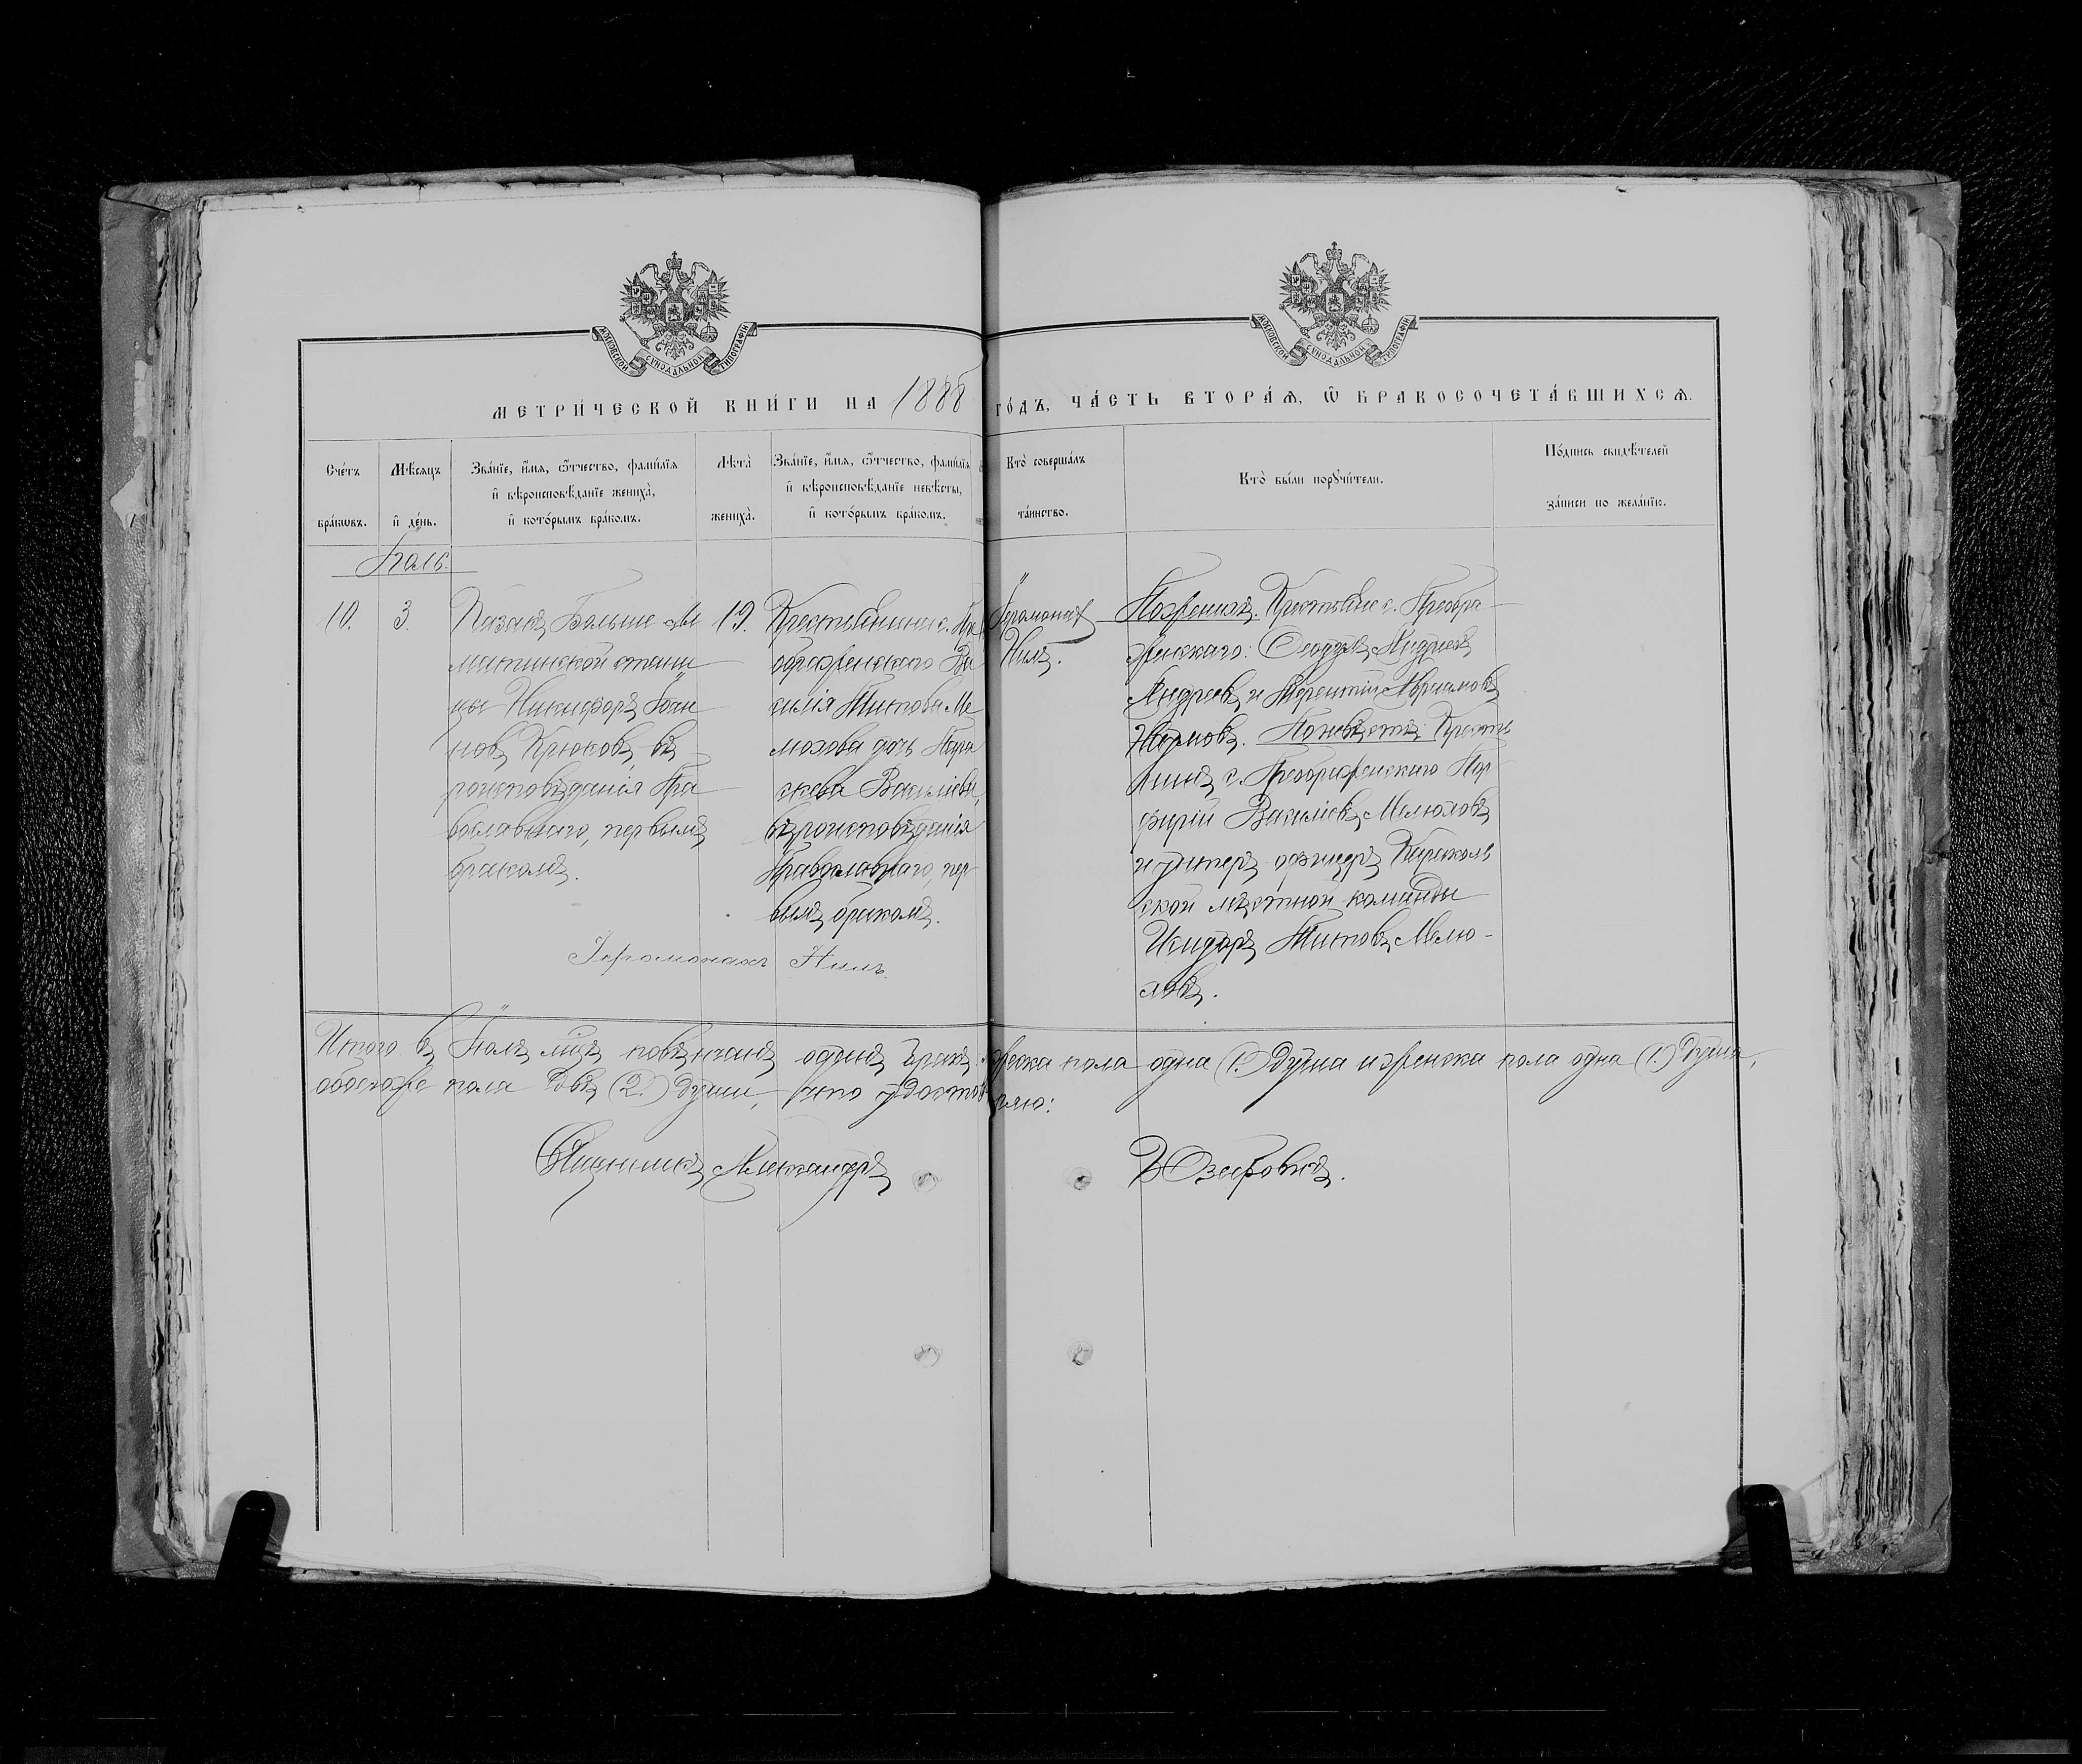 МОСКОВСКОЙ СУНОДАЛЬНОЙ ТИПОГРАФІИ
МОСКОВСКОЙ СУНОДАЛЬНОЙ ТИПОГРАФІИ
МЕТРИ́ЧЕСКОЙ КНИ́ГИ НА 1888 ГО́ДЪ, ЧА́СТЬ ВТОРА́Ѧ, Ѽ БРАКОСОЧЕТА́ВШИХСѦ.
Сче́тъ бра́кѡвъ.
Мѣ́сѧцъ и҆ де́нь.
Зва́нїе, и҆́мѧ, ѻ҆́тчество, фамѵ́лїѧ и҆ вѣроисповѣ́данїе жениха̀, и҆ кото́рымъ бра́комъ.
Лѣта̀ жениха̀.
Зва́нїе, и҆́мѧ, ѻ҆́тчество, фамѵ́лїѧ и҆ вѣроисповѣ́данїе невѣ́сты, и҆ кото́рымъ бра́комъ.
Кто̀ соверша́лъ та́инство.
Кто̀ бы́ли порꙋчи́тели.
По́дпись свидѣ́телей за́писи по жела́нїю.
Іюль.
10.
3.
Казакъ Больше-Ал
матинской стани
цы Никифоръ Іоан
новъ Крюковъ, вѣ
роисповѣданія Пра
вославнаго, первымъ
бракомъ.
19.
Крестьянина с. Пре
ображенскаго Ва
силія Титова Ме
лохова дочь Пара
скева Васильева,
вѣроисповѣданія
Православнаго, пер-
вымъ бракомъ.
Іеромонахъ
Нилъ.
По женихѣ: Крестьяне с. Преобра
женскаго: Андреевъ
Андреевъ и Терентій Аврамовъ
По невѣстѣ: Кресть
янинъ с. Преображенскаго Пор-
фирій Васильевъ Мелоховъ
и унтеръ-офицеръ Каракол
ской мѣстной команды
Исидоръ Титовъ Мело-
ховъ.
Іеромонахъ Нилъ.
Итого въ Іюлѣ мцѣ повѣнчанъ одинъ бракъ. мужеска пола одна (1.) душа и женска пола одна (1.) душа,
обоего же пола двѣ (2.) души, что удостовѣряю:
Священникъ Александръ